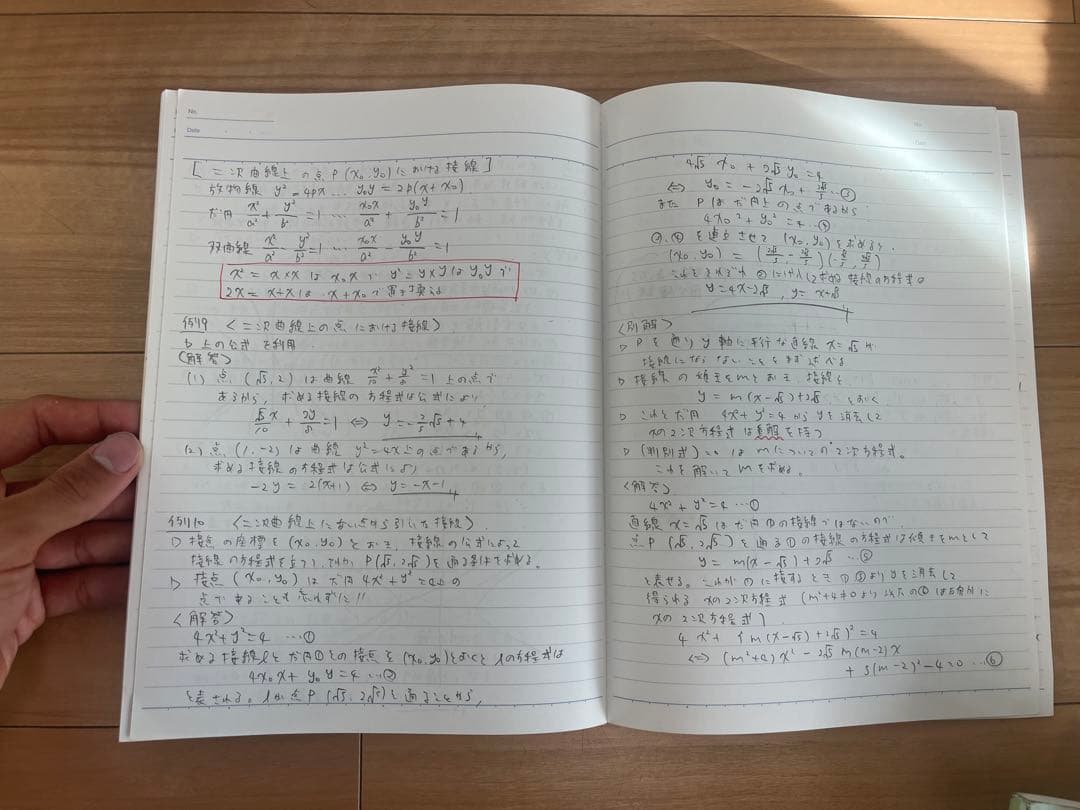 No.
Date
[二次曲線上の点P(x₀, y₀)における接線]
放物線 y² = 4px … y₀y = 2p(x + x₀)
だ円 x²/a² + y²/b² = 1 … x₀x/a² + y₀y/b² = 1
双曲線 x²/a² - y²/b² = 1 … x₀x/a² - y₀y/b² = 1
x² = x×x は x₀x で y² = y×y は y₀y で
2x = x+x は x+x₀ で
例19 〈二次曲線上の点における接線〉
▷ 上の公式を利用
〈解答〉
(1) 点(√5, 2)は曲線 x²/10 + y²/8 = 1 上の点で
あるから、求める接線の方程式は公式により
√5x/10 + 2y/8 = 1 ⇔ y = -2/5√5x + 4
(2) 点(1, -2)は曲線 y² = 4x 上の点であるから、
求める接線の方程式は公式により
-2y = 2(x+1) ⇔ y = -x-1
例110 〈二次曲線上にない点から引いた接線〉
▷ 接点の座標を(x₀, y₀)とおき、接線の公式によって
接線の方程式を立て、それが P(√5, 2√5)を通る条件を求める。
▷ 接点(x₀, y₀)はだ円 4x² + y² = 4 上の
点であることも忘れずに!!
〈解答〉
4x² + y² = 4 …①
求める接線lとだ円①との接点を(x₀, y₀)とおくとlの方程式は
4x₀x + y₀y = 4 …②
と表される。lが点P(√5, 2√5)を通ることから、
No.
Date
4√5 x₀ + 2√5 y₀ = 4
⇔ y₀ = -2x₀ + 2√5/5 …③
また Pはだ円上の点であるから
4x₀² + y₀² = 4 …④
③, ④を連立させて(x₀, y₀)を求めると
(x₀, y₀) = (2√5/5, -2√5/5) (-√5/5, 4√5/5)
これをそれぞれ②に代入して求める接線の方程式は
y = 4x - 2√5, y = x + √5
〈別解〉
▷ Pを通りy軸に平行な直線 x = √5 が
接線にならないことをまず述べる
▷ 接線の傾きをmとおき、接線を
y = m(x - √5) + 2√5 とおく
▷ これとだ円 4x² + y² = 4 からyを消去して
xの2次方程式は重解を持つ
▷ (判別式) = 0 は mについての2次方程式。
これを解いてmを求める。
〈解答〉
4x² + y² = 4 …①
直線 x = √5 はだ円①の接線ではないので、
点P(√5, 2√5)を通る①の接線の方程式は傾きをmとして
y = m(x - √5) + 2√5 …⑤
と表せる。これが①に接するとき①⑤よりyを消去して
得られるxの2次方程式 (m²+4≠0より
xの2次方程式)
4x² + {m(x - √5) + 2√5}² = 4
⇔ (m²+4)x² - 2√5 m(m-2)x
+ 5(m-2)² - 4 = 0 …⑥